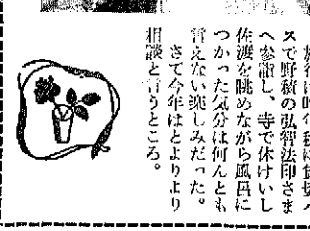 旅行は昨年秋は貸切バ
スで野積の弘智法印さま
へ参詣し、寺で休けいし
佐渡を眺めながら風呂に
つかった気分は何んとも
言えない楽しみだった。
さて今年はとよりより
相談と言うところ。